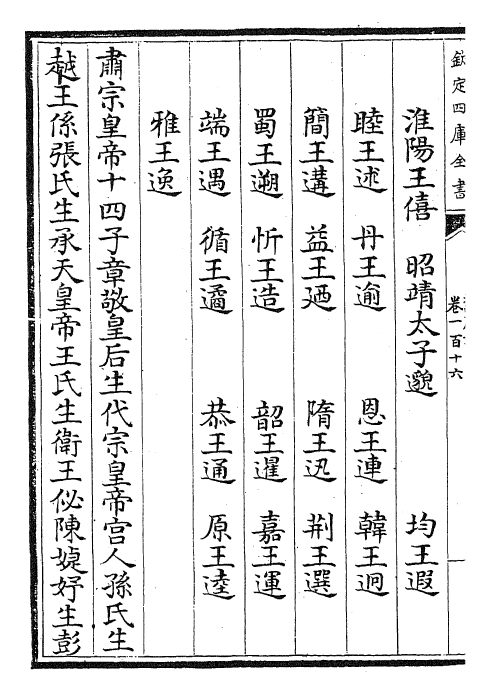 欽定四庫全書
卷一百十六
淮陽王僖 昭靖太子邈 均王遐
睦王述 丹王逾 恩王連 韓王迥
簡王遘 益王迺 隋王迅 荆王選
蜀王遡 忻王造 韶王暹 嘉王運
端王遇 循王遹 恭王通 原王逵
雅王逸
肅宗皇帝十四子章敬皇后生代宗皇帝宫人孫氏生
越王係張氏生承天皇帝王氏生衛王佖陳婕妤生彭